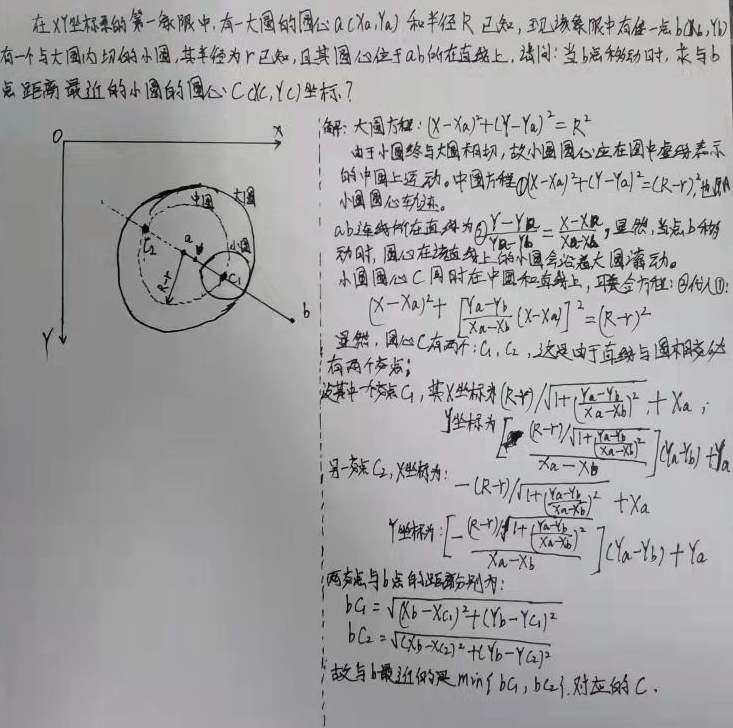 在XY坐标系的第一象限中,有一大圆的圆心a(Xa,Ya)和半径R已知,现该象限中有任一点b(Xb,Yb)
有一个与大圆内切的小圆,其半径为r已知,且其圆心位于ab所在直线上,请问:当b点移动时,求与b
点距离最近的小圆的圆心C(XC,YC)坐标?
O
X
Y
大圆
中圆
小圆
C₂
a
R-r
C₁
b
解:大圆方程:(X-Xa)²+(Y-Ya)²=R²
由于小圆终与大圆相切,故小圆圆心应在图中虚线表示
的中圆上运动。中圆方程①(X-Xa)²+(Y-Ya)²=(R-r)²,也即
小圆圆心轨迹。
ab连线所在直线为②(Y-Ya)/(Ya-Yb)=(X-Xa)/(Xa-Xb),显然,当点b移
动时,圆心在该直线上的小圆会沿着大圆滚动。
小圆圆心C同时在中圆和直线上,可联合方程:②代入①:
(X-Xa)²+[(Ya-Yb)/(Xa-Xb)(X-Xa)]²=(R-r)²
显然,圆心C有两个:C₁,C₂,这是由于直线与圆相交必
有两个交点;
设其中一个交点C₁,其X坐标为(R-r)/√(1+((Ya-Yb)/(Xa-Xb))²)+Xa;
Y坐标为[((R-r)/√(1+((Ya-Yb)/(Xa-Xb))²))/(Xa-Xb)](Ya-Yb)+Ya
另一交点C₂,X坐标为:-(R-r)/√(1+((Ya-Yb)/(Xa-Xb))²)+Xa
Y坐标为:[-((R-r)/√(1+((Ya-Yb)/(Xa-Xb))²))/(Xa-Xb)](Ya-Yb)+Ya
两交点与b点的距离分别为:
bC₁=√((Xb-XC₁)²+(Yb-YC₁)²)
bC₂=√((Xb-XC₂)²+(Yb-YC₂)²)
故与b最近的是min{bC₁,bC₂}对应的C.